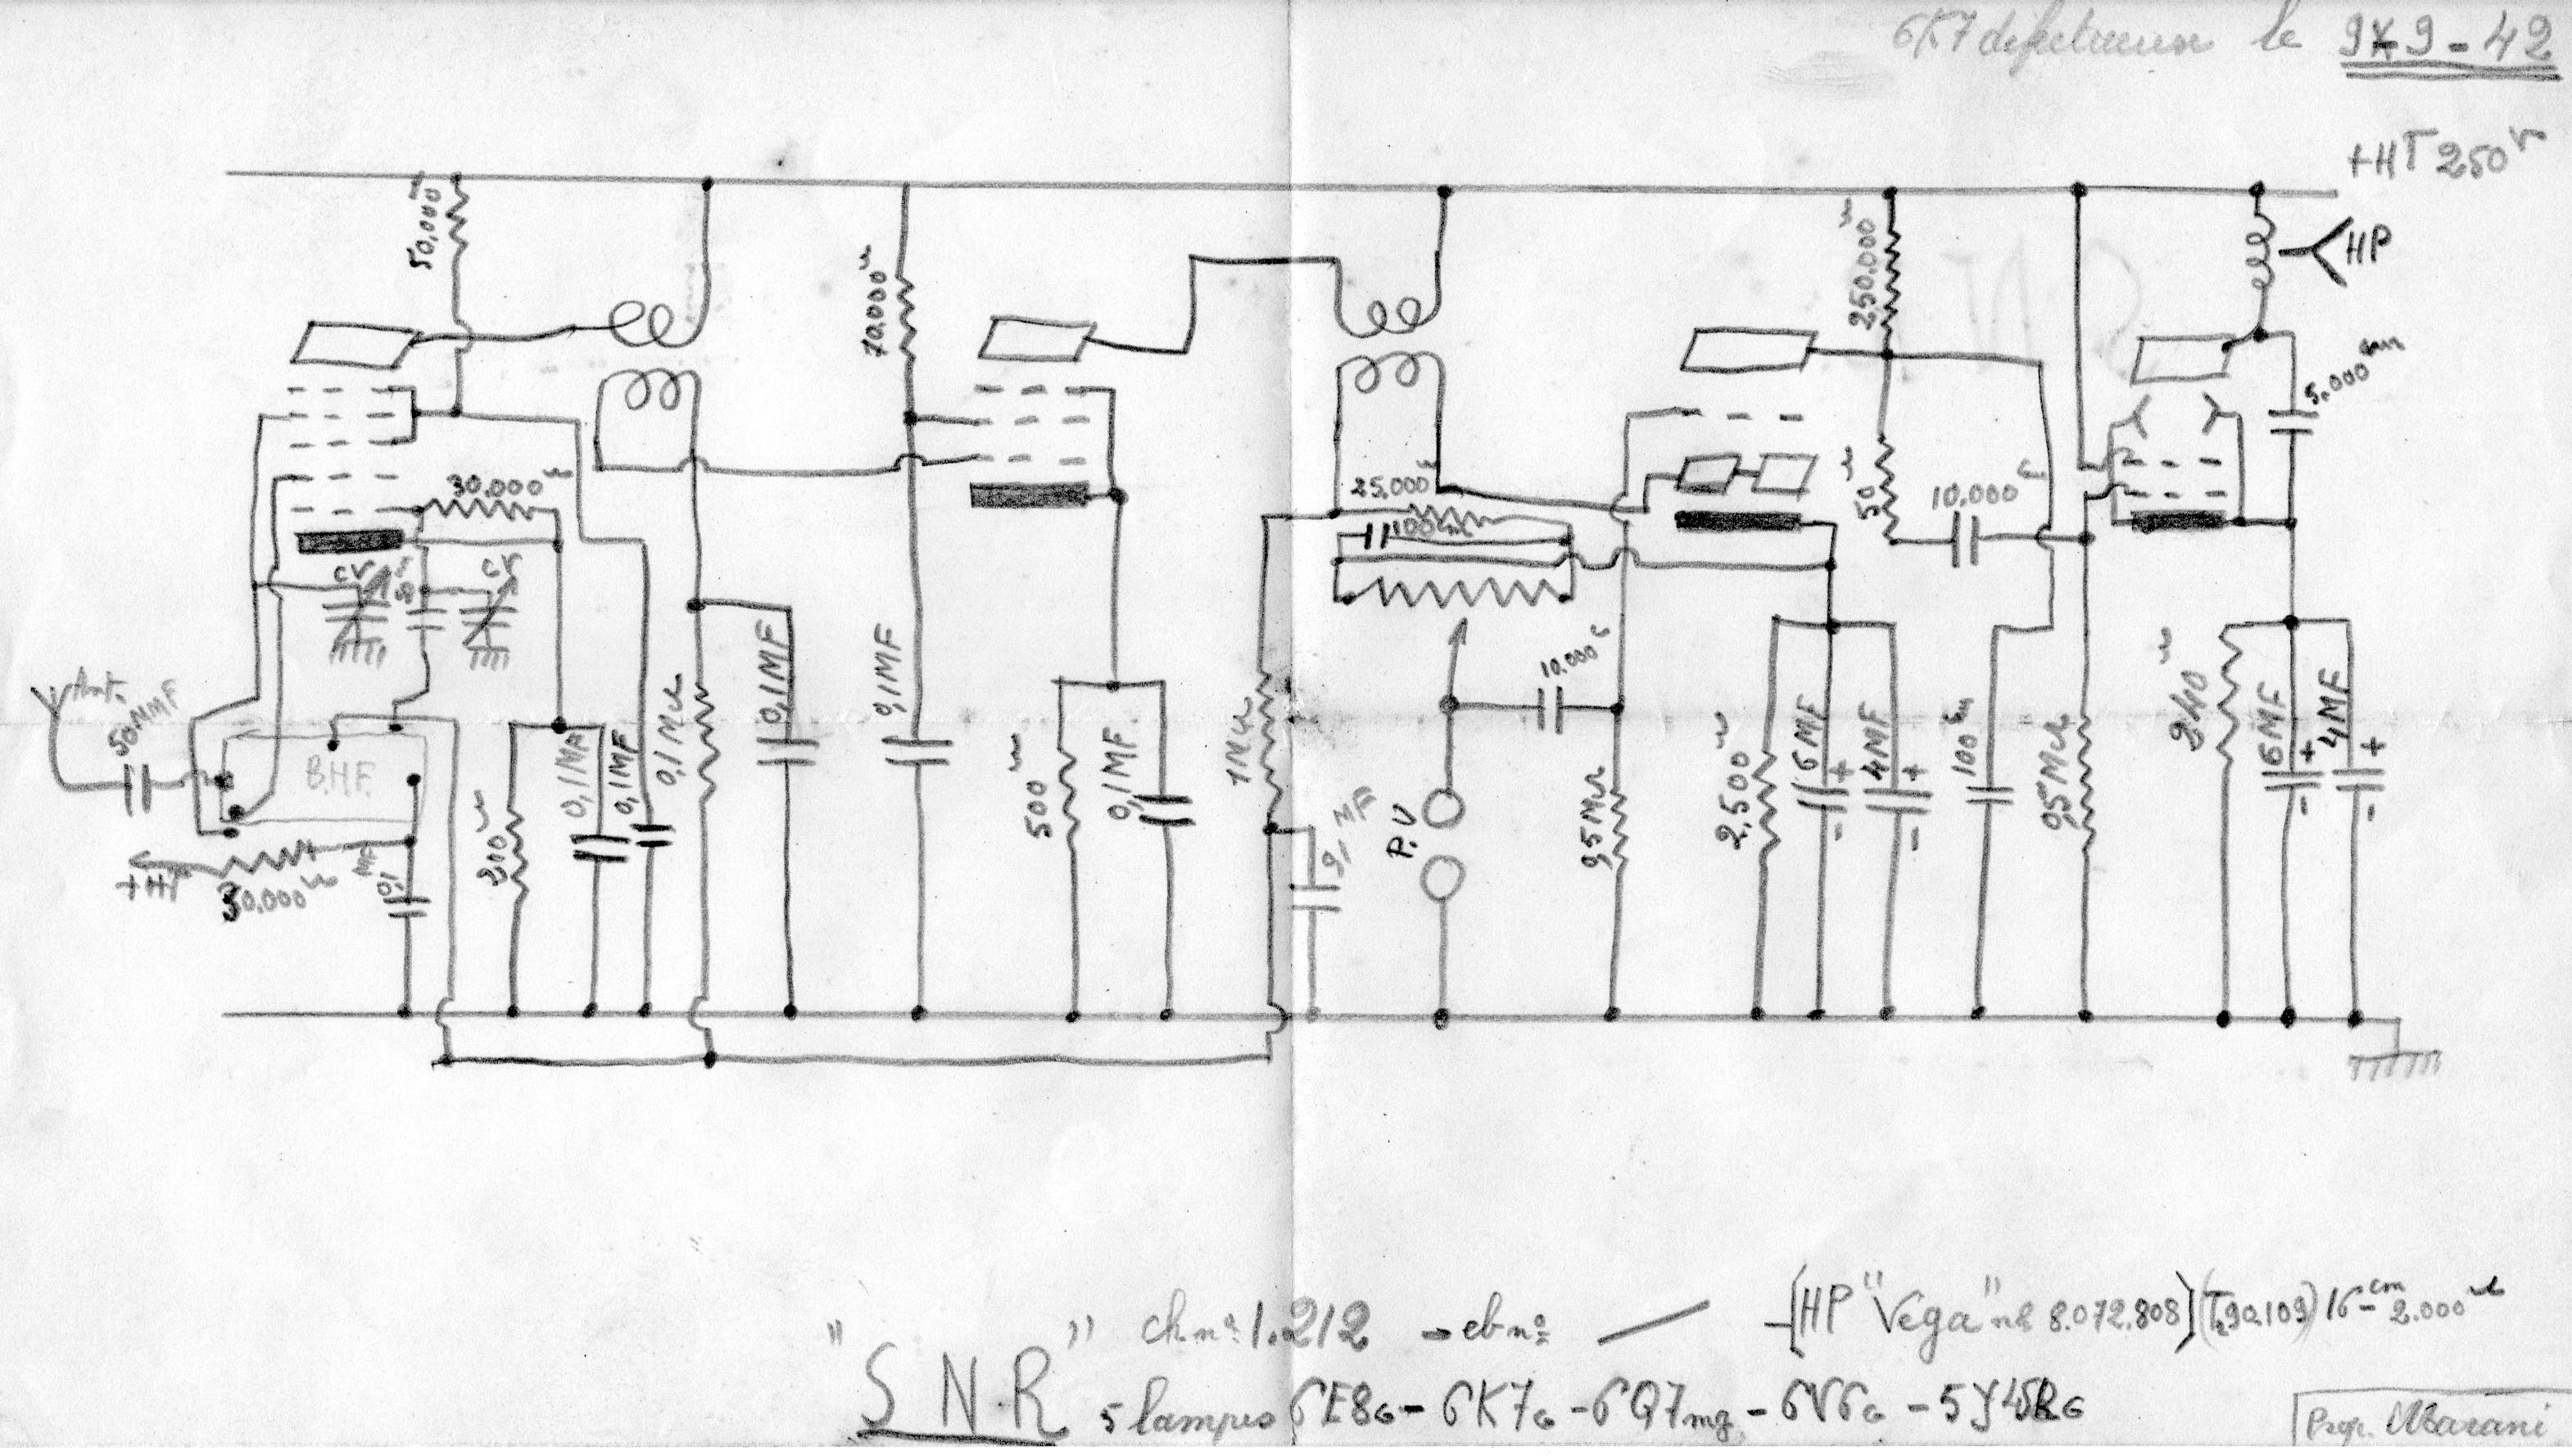 6K7 défectueuse le 9-9-42
+HT 250ᵛ
50.000
70.000ω
250.000ω
HP
5.000cm
30.000ω
CV
50
CV
25.000ω
100cm
50ω
10.000
Ant.
50 MMF
B.H.F.
+HT
30.000ω
0,1 MF
200ω
0,1MF
0,1MF
0,1 MΩ
0,1MF
0,1MF
500ω
0,1MF
1MΩ
0,1 MF
P.U
10.000
0,5MΩ
2.500ω
6MF
+
-
4MF
+
-
100cm
0,5MΩ
240ω
6MF
+
-
4MF
+
-
"SNR" ch nº 1.212 - eb nº — [HP "Véga" nº 8.072.808] (T290.109) 16cm - 2.000ω
5 lampes 6E8G - 6K7G - 6Q7mg - 6V6G - 5Y4SRG
Marani